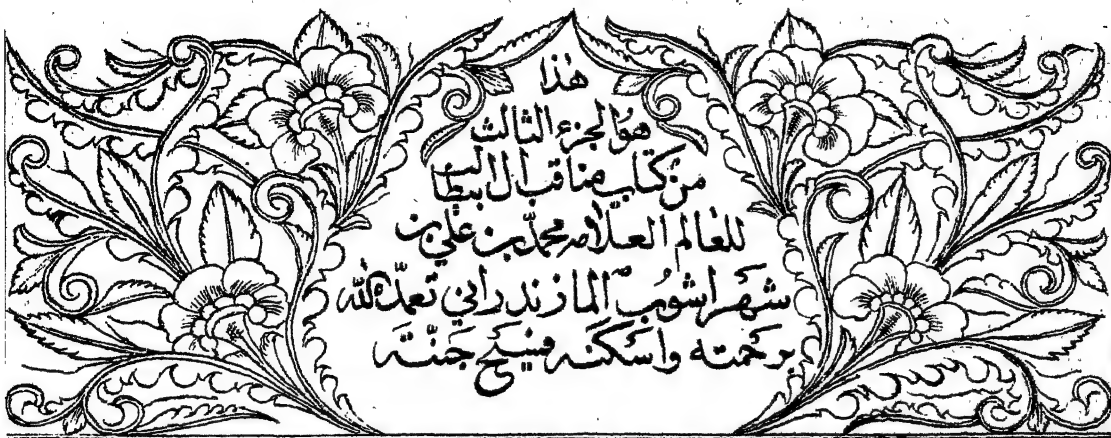 هذا
هو الجزء الثالث
من كتاب مناقب ال ابيطالب
للعالم العلامه محمد بن علي بن
شهراشوب المازندراني تغمده الله
برحمته واسكنه فسيح جنته